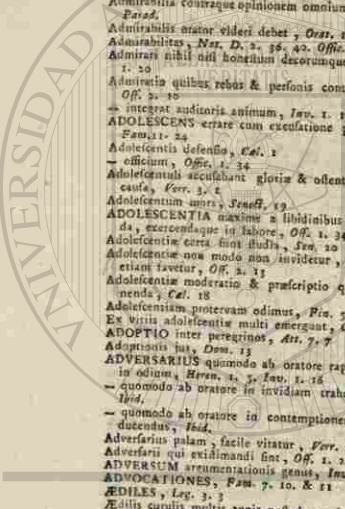 Admirabilia contraque opinionem omnium
Parad.
Admirabilis orator videri debet, Orat. 1
Admirabilitas, Nat. D. 2. 36. 42. Offic.
Admirari nihil nisi honestum decorumque
1. 20
Admiratio quibus rebus & personis
Off. 2. 10
— integrat auditoris animum, Inv. 1. 1
ADOLESCENS errare cum excusatione
Fam. 11. 24
Adolescentis defensio, Cæl. 1
— officium, Offic. 1. 34
Adolescentuli accusabant gloriæ &
causa, Verr. 3. 1
Adolescentum mors, Senect. 19
ADOLESCENTIA maxime a libidinibus
da, exercendaque in labore, Off. 1. 34
Adolescentiæ certa sunt studia, Sen. 20
Adolescentiæ non modo non invidetur,
etiam favetur, Off. 2. 13
Adolescentiæ moderatio & præscriptio q
nenda, Cæl. 18
Adolescentiam protervam odimus, Fin. 5
Ex vitiis adolescentiæ multi emergunt, C
ADOPTIO inter peregrinos, Att. 7. 7
Adoptionis jus, Dom. 13
ADVERSARIUS quomodo ab oratore rap
in odium, Heren. 1. 5. Inv. 1. 16
— quomodo ab oratore in invidiam trah
Ibid.
— quomodo ab oratore in contemptione
ducendus, Ibid.
Adversarius palam, facile vitatur, Verr.
Adversarii qui existimandi sint, Off. 1. 2
ADVERSUM argumentationis genus, Inv
ADVOCATIONES, Fam. 7. 10. & 11
ÆDILES, Leg. 3. 3
Ædilis curulis multis
UNIVERSIDAD